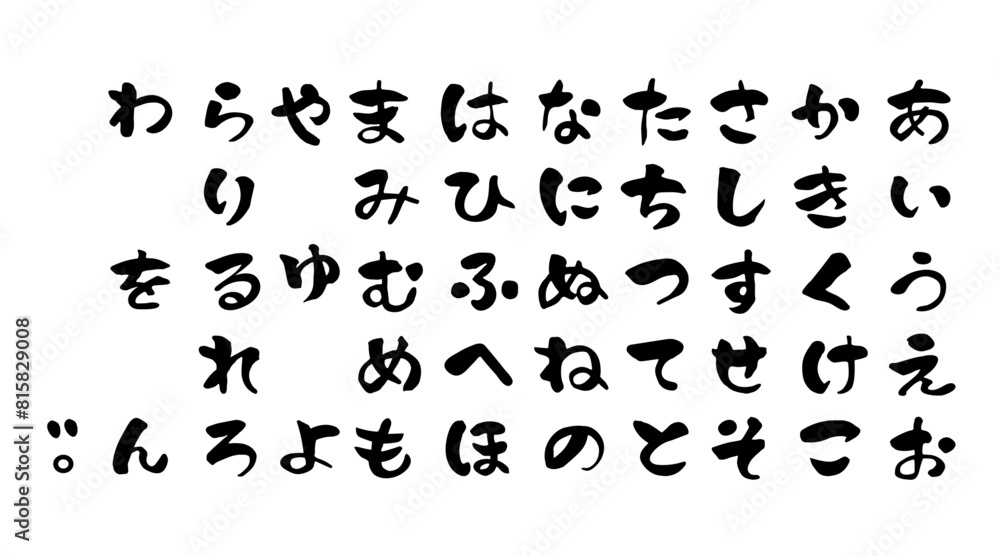 あいうえお
かきくけこ
さしすせそ
たちつてと
なにぬねの
はひふへほ
まみむめも
やゆよ
らりるれろ
わをん
゛゜
Adobe Stock | #815829008